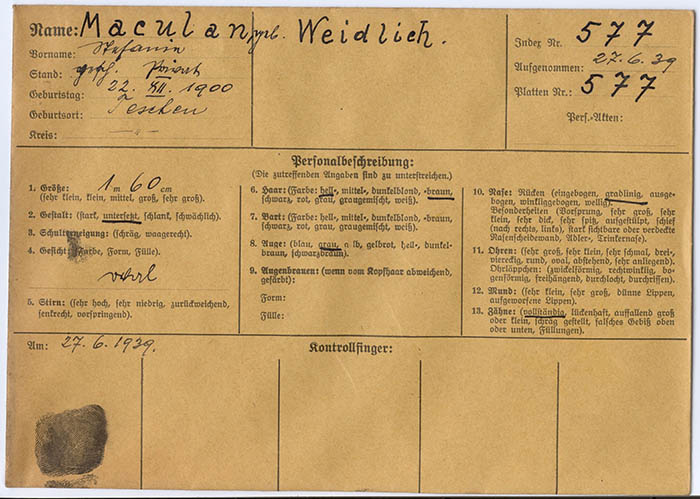 Name: Maculan, geb. Weidlich.
Vorname: Stefanie
Stand: gesch. Privat
Geburtstag: 22. XII. 1900
Geburtsort: Teschen
Kreis: -"-
Index Nr. 577
Aufgenommen: 27.6.39
Platten Nr.: 577
Pers.-Akten:
Personalbeschreibung:
(Die zutreffenden Angaben sind zu unterstreichen.)
1. Größe: 1 m 60 cm
(sehr klein, klein, mittel, groß, sehr groß).
2. Gestalt: (stark, untersetzt, schlank, schwächlich).
3. Schulterneigung: (schräg, waagerecht).
4. Gesicht: (Farbe, Form, Fülle).
oval
5. Stirn: (sehr hoch, sehr niedrig, zurückweichend,
senkrecht, vorspringend).
6. Haar: (Farbe: hell-, mittel-, dunkelblond, -braun,
schwarz, rot, grau, graugemischt, weiß).
7. Bart: (Farbe: hell-, mittel-, dunkelblond, -braun,
schwarz, rot, grau, graugemischt, weiß).
8. Auge: (blau, grau, gelb, gelbrot, hell-, dunkel-
braun, schwarzbraun).
9. Augenbrauen: (wenn vom Kopfhaar abweichend,
gefärbt):
Form:
Fülle:
10. Nase: Rücken (eingebogen, gradlinig, ausge-
bogen, winkliggebogen, wellig).
Besonderheiten (Vorsprung, sehr groß, sehr
klein, sehr dick, sehr spitz, aufgestülpt, schief
nach rechts, links), stark sichtbare oder verdeckte
Nasenscheidewand, Adler-, Trinkernase).
11. Ohren: (sehr groß, sehr klein, sehr schmal, drei-
viereckig, rund, oval, abstehend, sehr anliegend).
Ohrläppchen: (zwickelförmig, rechtwinklig, bo-
genförmig, freihängend, durchlocht, durchriffen).
12. Mund: (sehr klein, sehr groß, dünne Lippen,
aufgeworfene Lippen).
13. Zähne: (vollständig, lückenhaft, auffallend groß
oder klein, schräg gestellt, falsches Gebiß oben
oder unten, Füllungen).
Am: 27.6.1939.
Kontrollfinger: